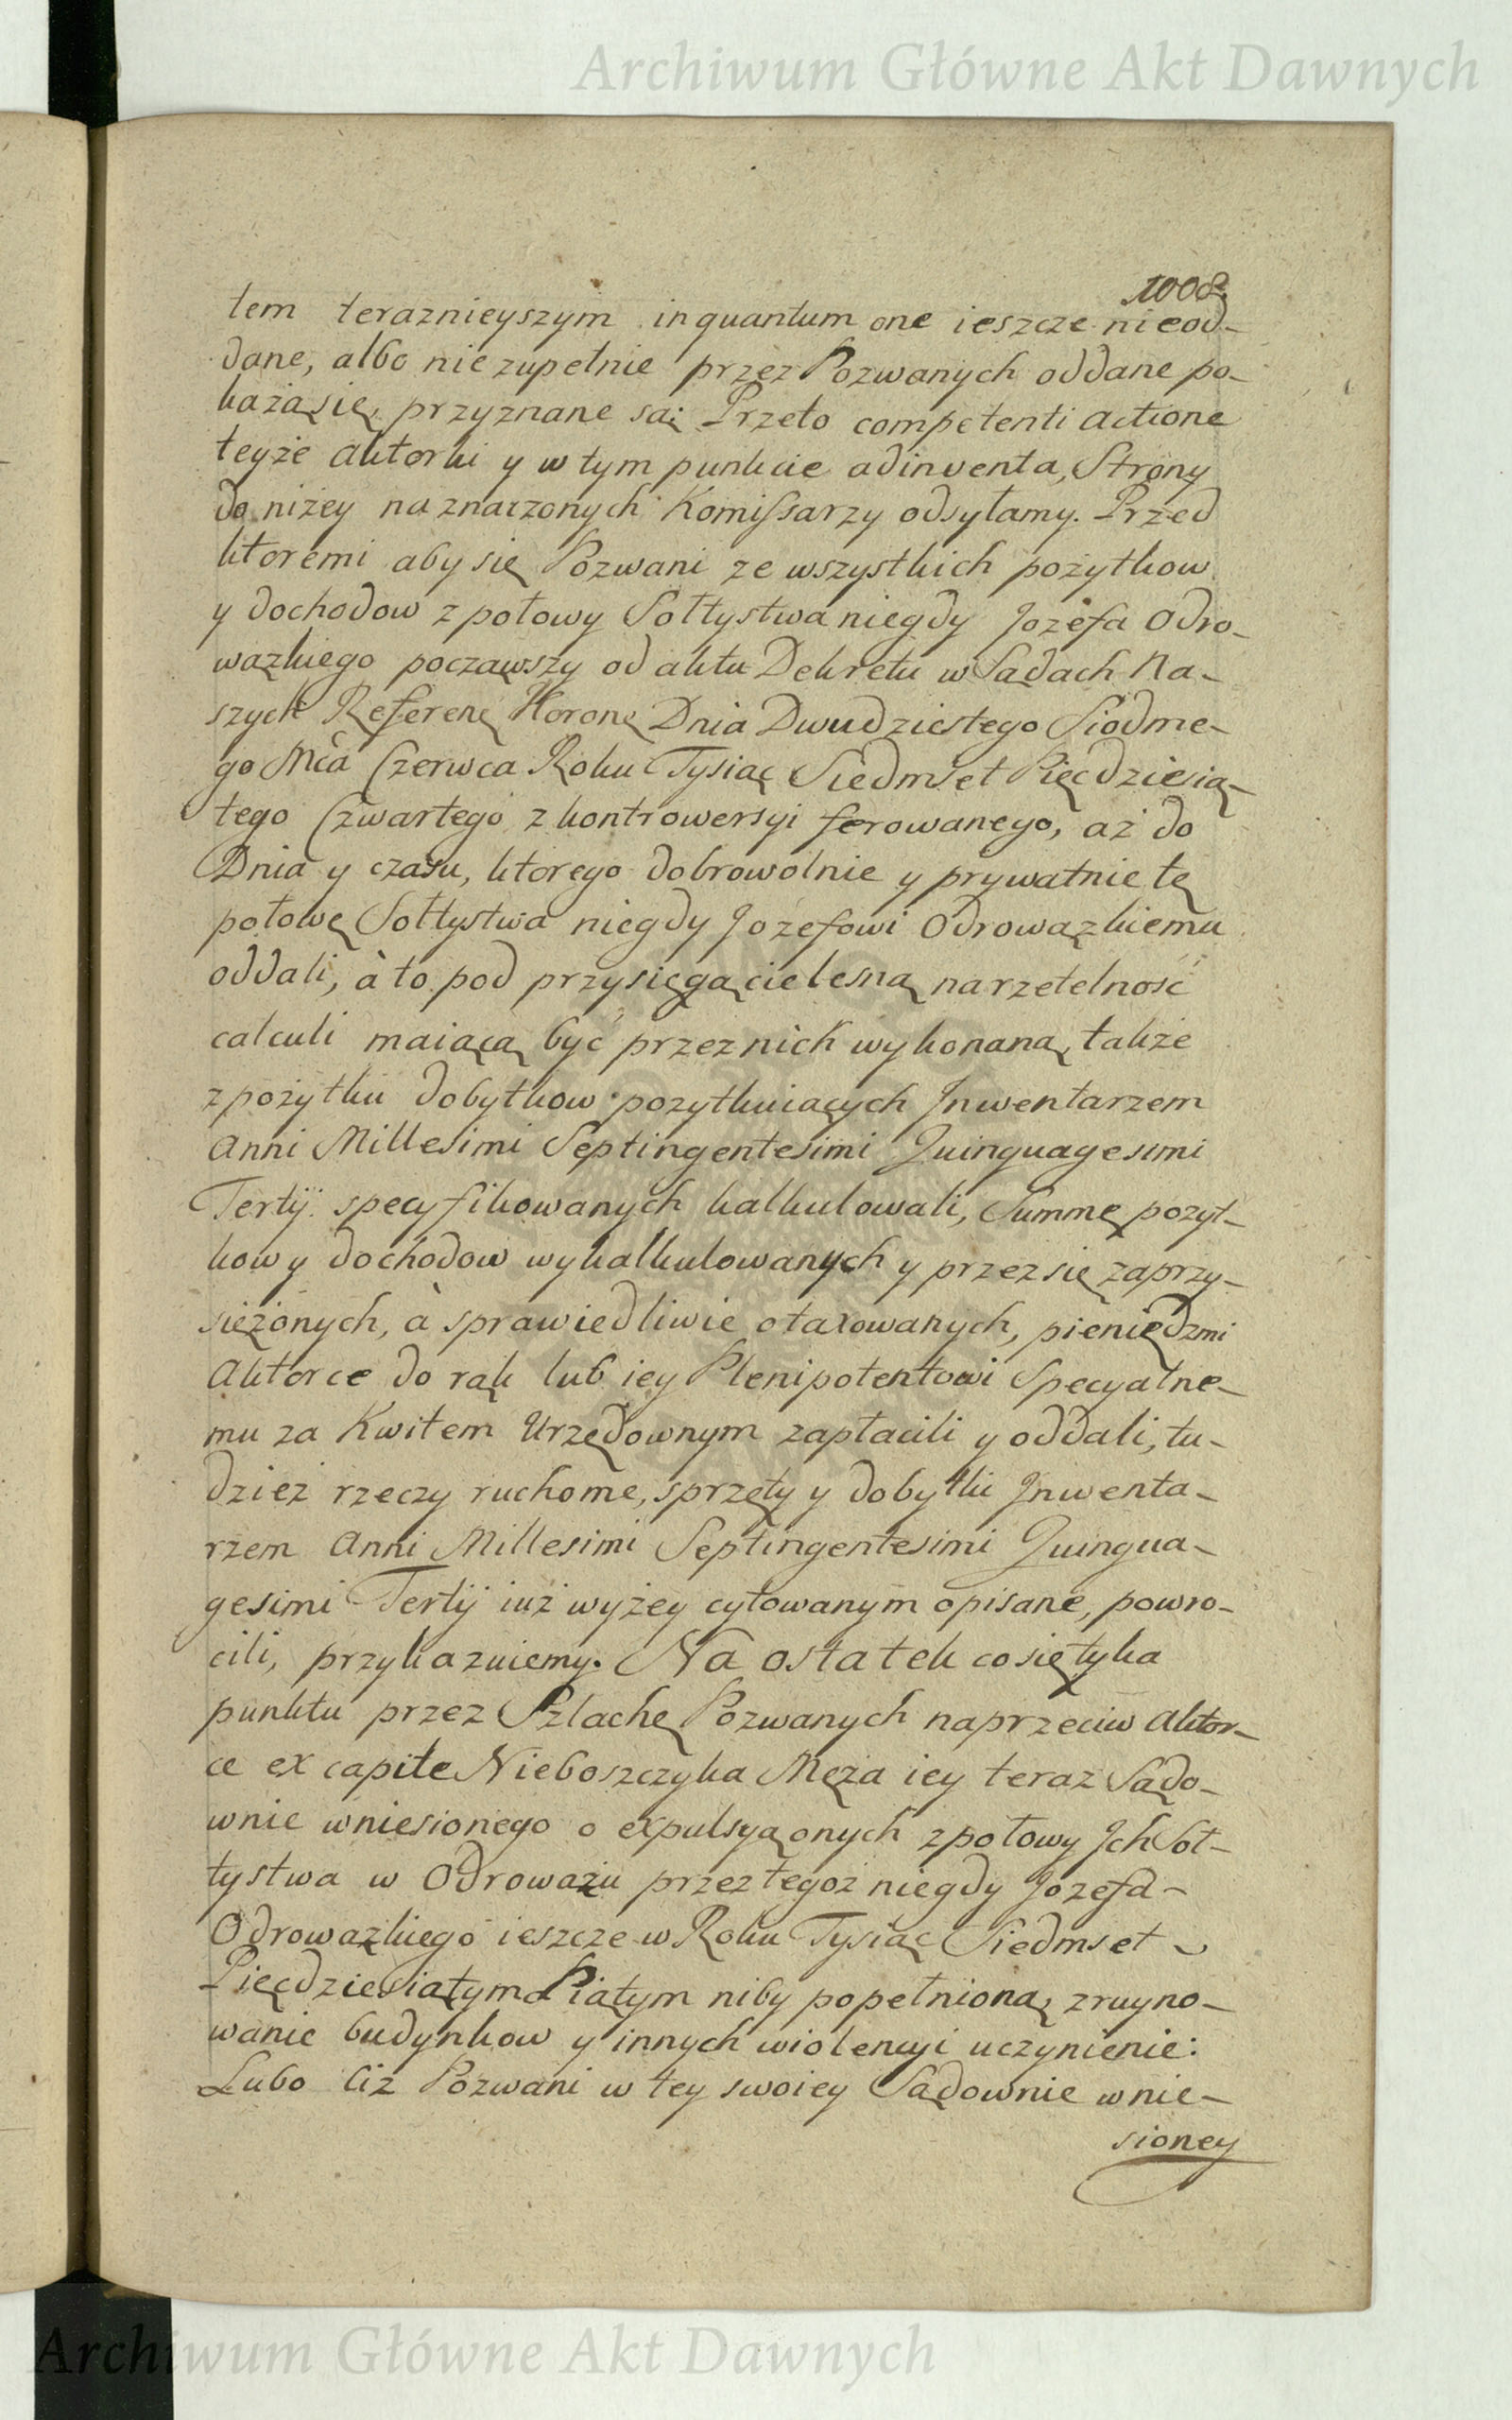 Archiwum Główne Akt Dawnych
1008.
tem teraznieyszym inquantum one ieszcze nieod-
dane, albo nie zupełnie przez Pozwanych oddane po-
każą się, przyznane są; Przeto competenti actione
teyże aktorki y w tym punkcie adinventa, Strony
do niżey naznaczonych Komissarzy odsyłamy. Przed
ktoremi aby się Pozwani ze wszystkich pożytkow
y dochodow z połowy Sołtystwa niegdy Jozefa Odro-
wązkiego począwszy od aktu Dekretu w Sądach Na-
szych Referen Koron Dnia Dwudziestego Siodme-
go Mca Czerwca Roku Tysiąc Siedmset Pięcdziesią-
tego Czwartego z kontrowersyi ferowanego, aż do
Dnia y czasu, ktorego dobrowolnie y prywatnie tę
połowę Sołtystwa niegdy Jozefowi Odrowązkiemu
oddali, à to pod przysięgą cielesną na rzetelność
calculi maiącą być przez nich wykonaną, także
z pożytku dobytkow pozytkuiących Jnwentarzem
Anni Millesimi Septingentesimi Quinquagesimi
Tertij specyfikowanych kalkulowali, Summę pozyt-
kow y dochodow wykalkulowanych y przez się zaprzy-
siężonych, à sprawiedliwie otaxowanych, pieniędzmi
Aktorce do rąk lub iey Plenipotentowi Specyalne-
mu za Kwitem Urzędownym zapłacili y oddali, tu-
dzież rzeczy ruchome, sprzęty y dobytki Jnwenta-
rzem Anni Millesimi Septingentesimi Quinqua-
gesimi Tertij iuż wyżey cytowanym opisane, powro-
cili, przykazuiemy. Na ostatek co się tyka
punktu przez Szlachę Pozwanych naprzeciw Aktor-
ce ex capite Nieboszczyka Męża iey teraz Sądo-
wnie wniesionego o expulsyą onych z połowy Jch Soł-
tystwa w Odrowążu przez tegoż niegdy Jozefa-
Odrowązkiego ieszcze w Roku Tysiąc Siedmset
Pięcdziesiątym Piątym niby popełnioną, zruyno-
wanie budynkow y innych wiolencyi uczynienie:
Lubo ciż Pozwani w tey swoiey Sądownie wnie-
sioney
Archiwum Główne Akt Dawnych